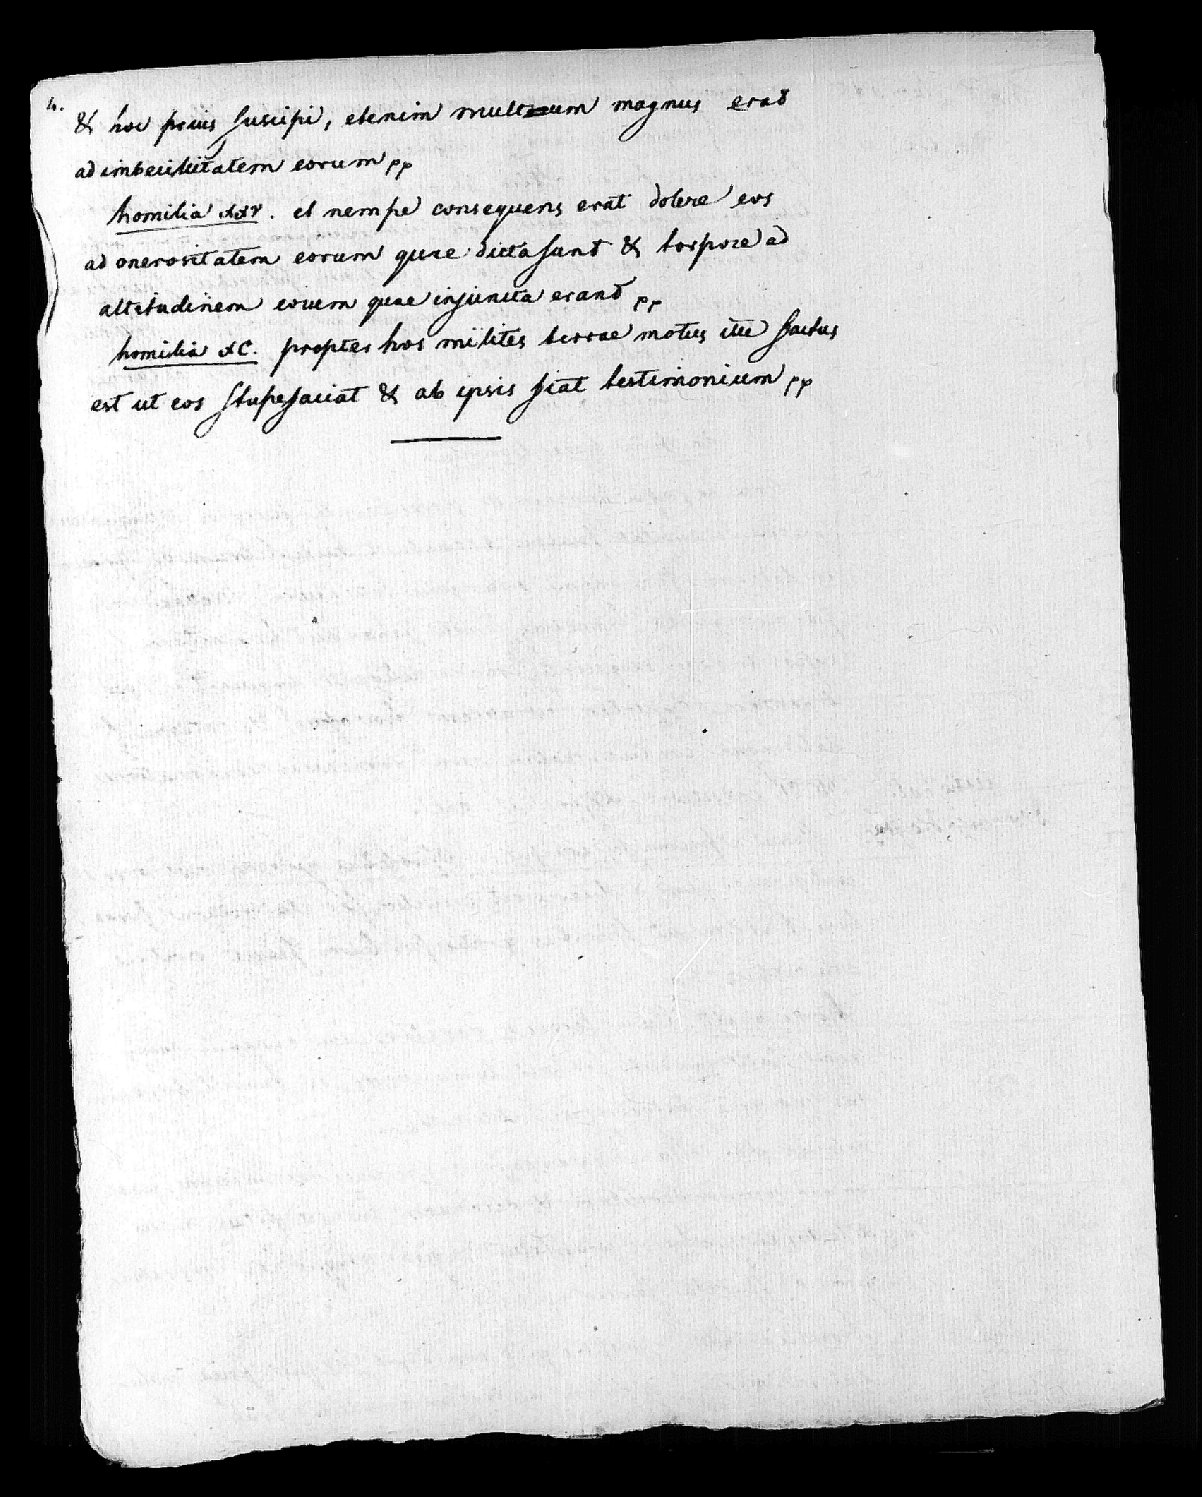 4.
& hoc prius suscipi, etenim multum magnus erat
ad imbecillitatem eorum pp
homilia xxv. et nempe consequens erat dolere eos
ad onerositatem eorum quae dicta sunt & torpore ad
altitudinem eorum quae injuncta erant pp
homilia XC. propter hos milites terrae motus ille factus
est ut eos stupefaciat & ab ipsis fiat testimonium pp